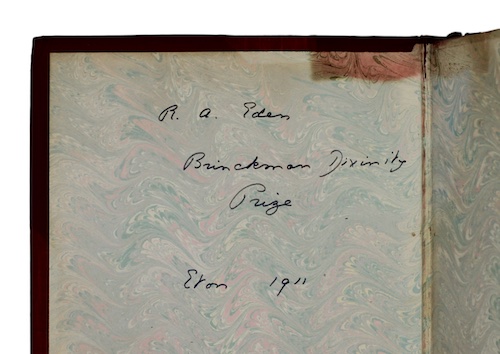 R. A. Eden
Brinckman Divinity
Prize
Eton 1911